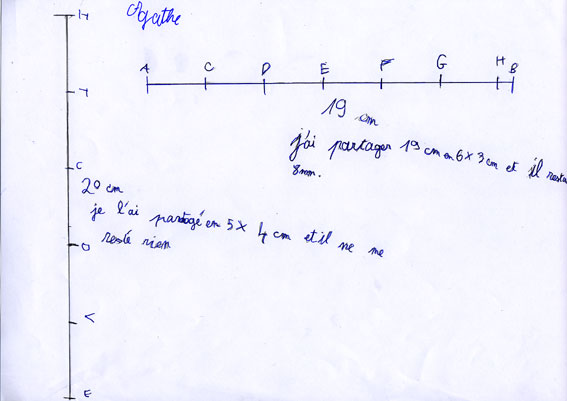 Agathe
A C D E F G H B
19 cm
j'ai partager 19 cm en 6 x 3 cm et il resta
8mm.
C
20 cm
je l'ai partagé en 5 x 4 cm et il ne me
resté rien